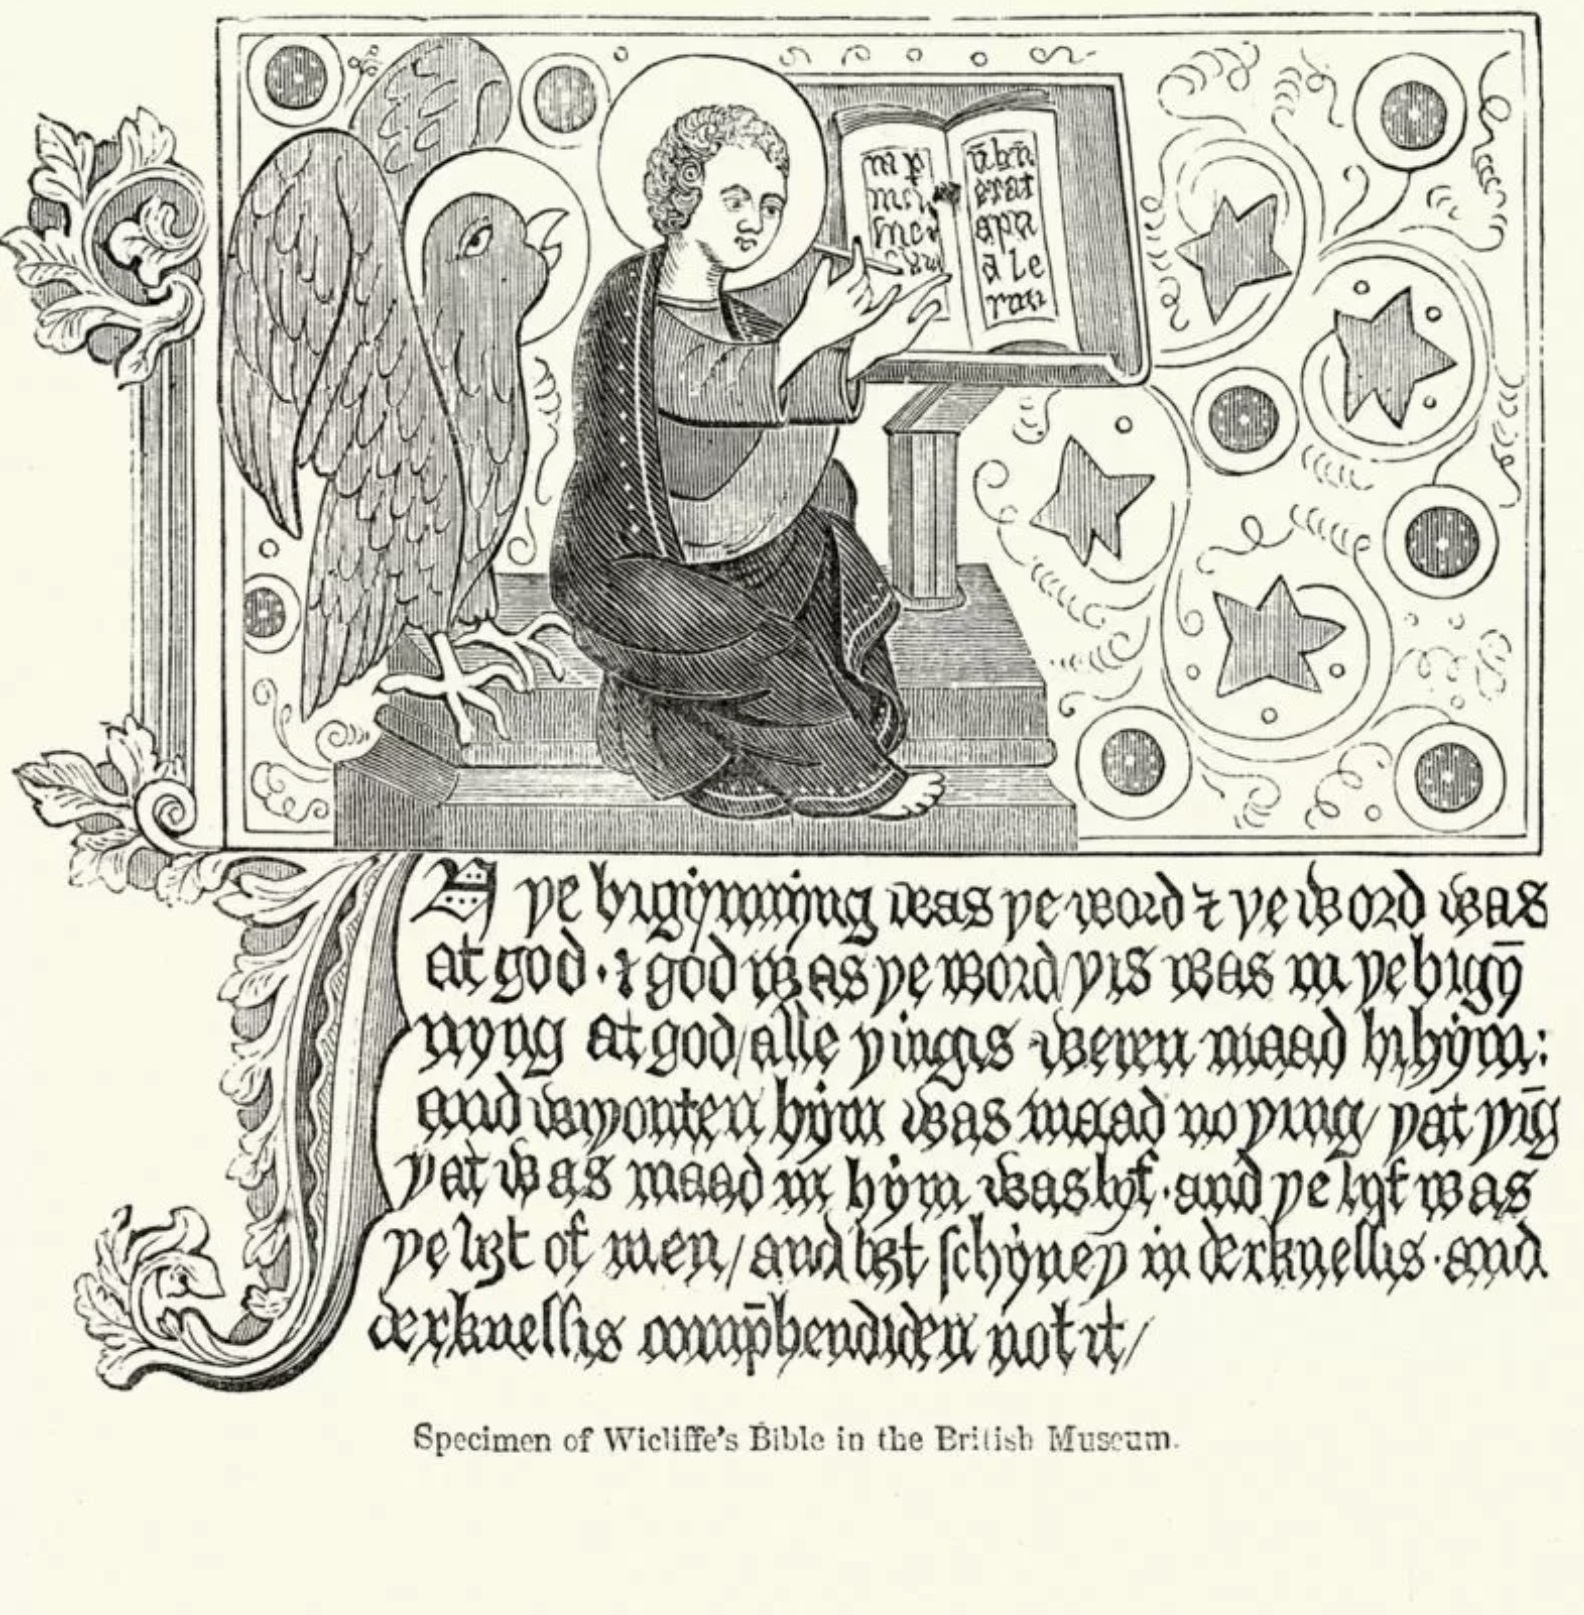 in p
erat
apu
IN ye bigẏnnẏng was ye word ⁊ ye word was
at god · ⁊ god was ye word/ yis was in ye bigȳ
nyng at god/ alle yingis weren maad bi hẏm:
and wiyouten hẏm was maad no ying/ yat yīg
yat was maad in hẏm was lyf · and ye lyf was
ye liȝt of men/ and liȝt ſchẏney in derkneſſis · and
derkneſſis comp̄hendiden not it/
Specimen of Wicliffe's Bible in the British Museum.